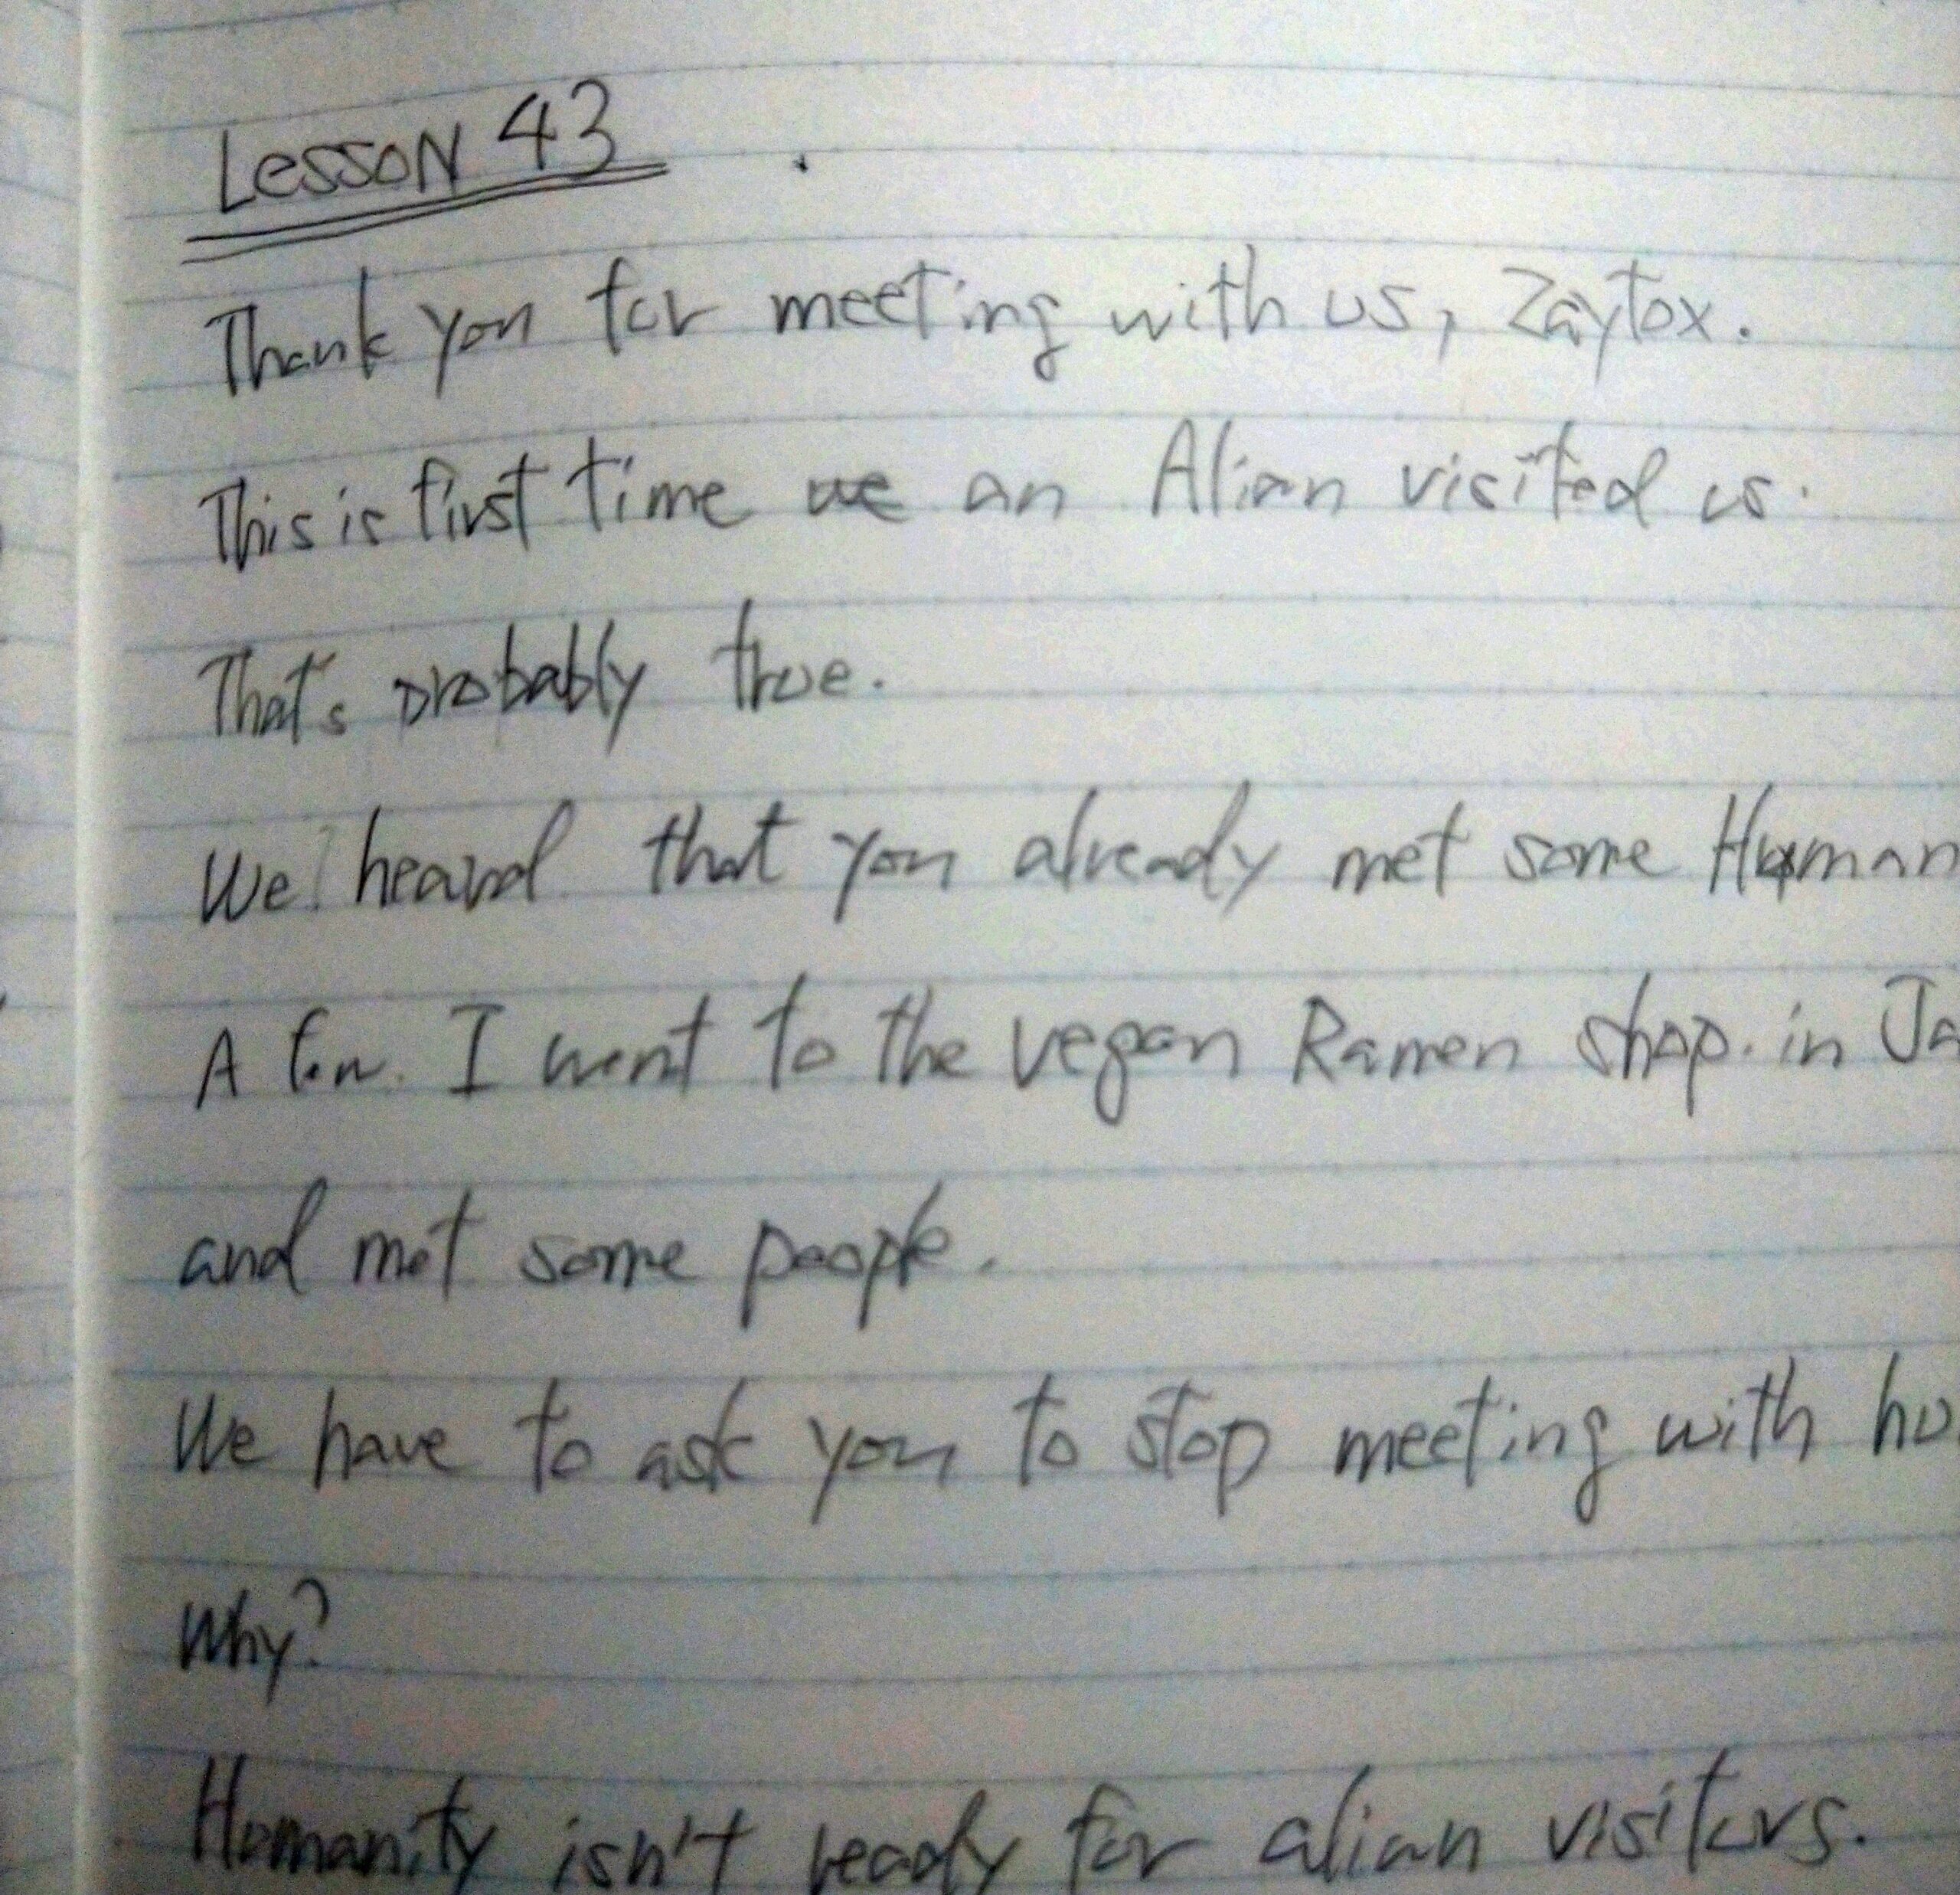 Lesson 43
Thank you for meeting with us, Zaytox.
This is first time we an Alian visited us.
That's probably true.
We heard that you already met some Human
A few. I went to the vegan Ramen shop. in Ja
and met some people.
We have to ask you to stop meeting with hu
Why?
Humanity isn't ready for alian visitors.